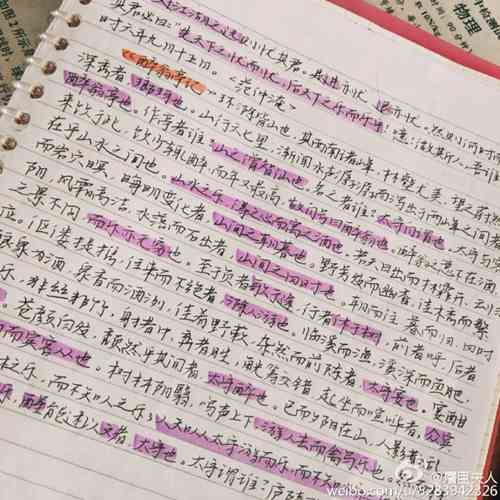 其必曰"先天下之忧而忧,后天下之乐而乐乎"噫!微斯人,吾谁
时六年九月十五日。(范仲淹)
《醉翁亭记》环滁皆山也。其西南诸峰,林壑尤美,望之蔚然
深秀者,琅琊也。山行六七里,渐闻水声潺潺而泻出于两峰之间
醉翁亭也。作亭者谁?山之僧智仙也。名之者谁?太守自谓也。太守与客
来饮于此,饮少辄醉,而年又最高,故自号曰醉翁也。醉翁之意不在酒
在乎山水之间也。山水之乐,得之心而寓之酒也。若夫日出而林霏开,云归
而岩穴暝,晦明变化者,山间之朝暮也。野芳发而幽香,佳木秀而繁
阴,风霜高洁,水落而石出者,山间之四时也。朝而往,暮而归,四时
之景不同,而乐亦无穷也。至于负者歌于途,行者休于树,前者呼,后者
应,伛偻提携,往来而不绝者,滁人游也。临溪而渔,溪深而鱼肥
酿泉为酒,泉香而酒洌,山肴野蔌,杂然而前陈者,太守宴也。宴酣
乐,非丝非竹,射者中,弈者胜,觥筹交错,起坐而喧哗者,众宾
苍颜白发,颓然乎其间者,太守醉也。已而夕阳在山,人影散乱
而宾客从也。树林阴翳,鸣声上下,游人去而禽鸟乐也。
林之乐,而不知人之乐;人知从太守游而乐,而不知
乐,醉能述以文者,太守也。太守谓谁?庐陵
物理
weibo.com/u/5283942326